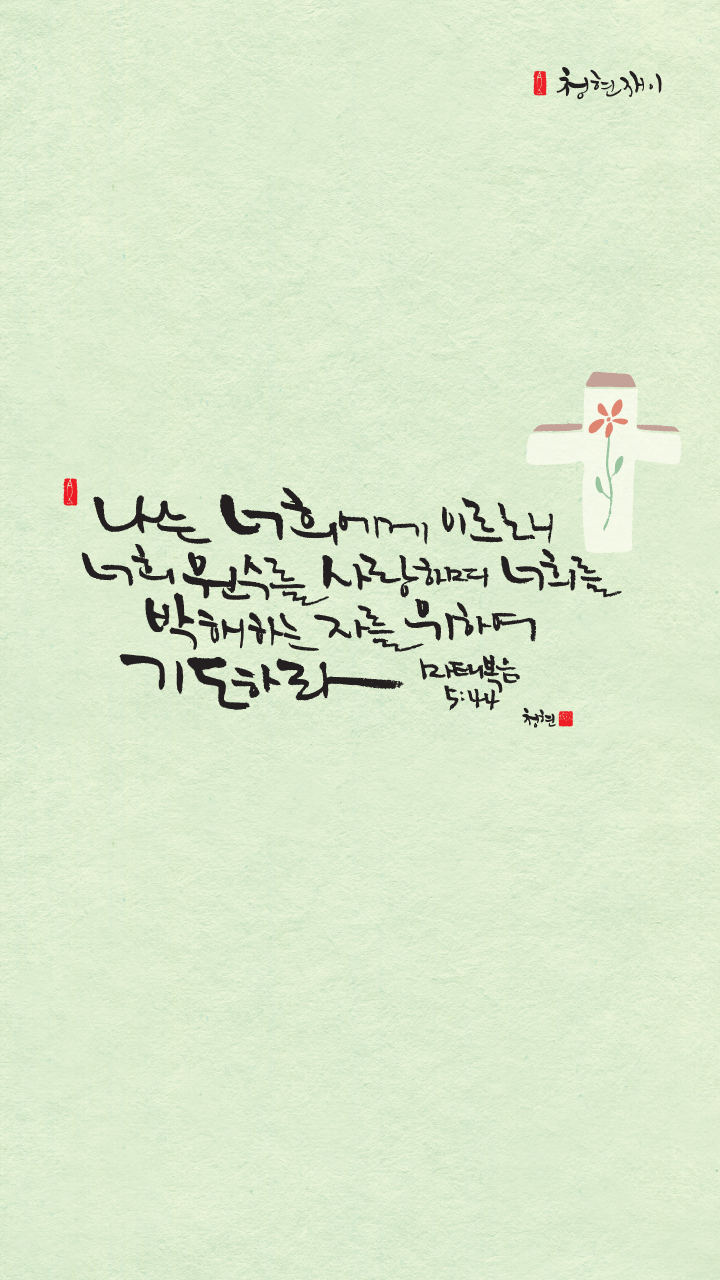 청현재이
나는 너희에게 이르노니
너희 원수를 사랑하며 너희를
박해하는 자를 위하여
기도하라
마태복음
5:44
청현